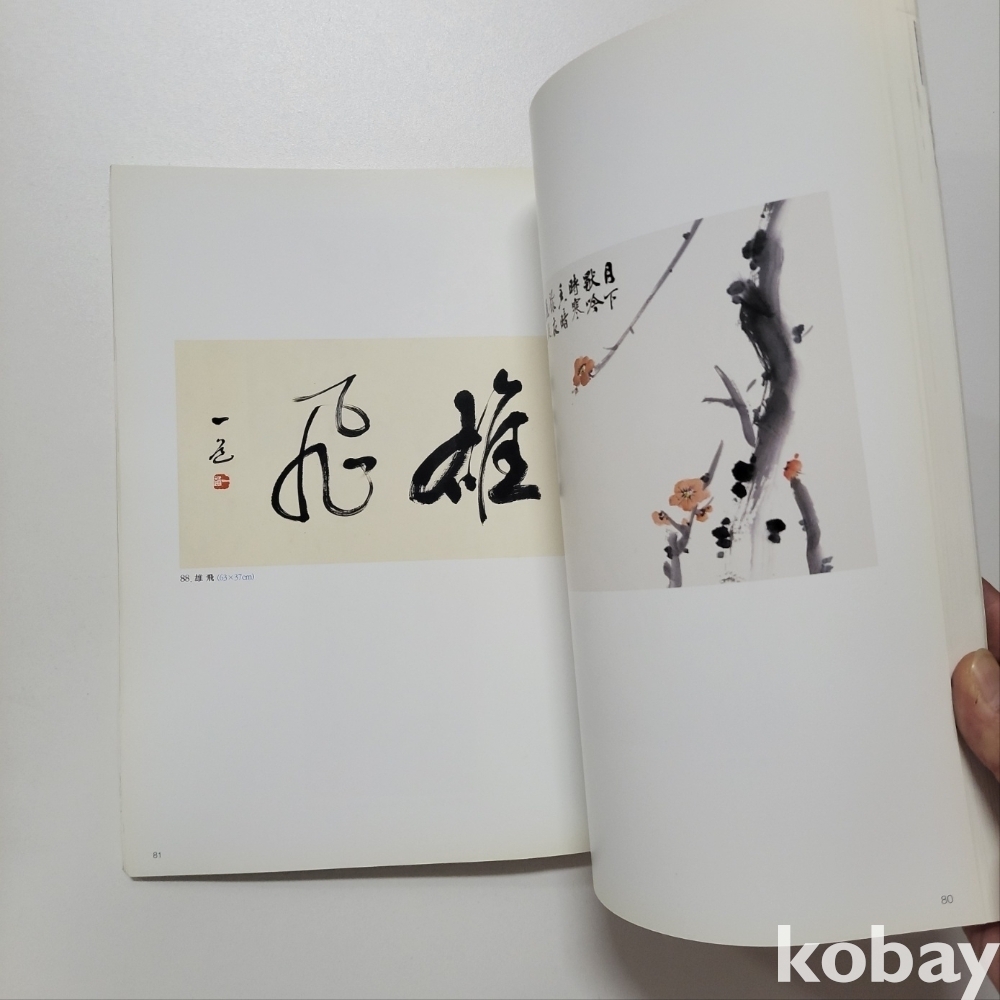 月下
歌吟
時寒
雄飛
一道
88. 雄 飛 (63×37cm)
81
80
kobay